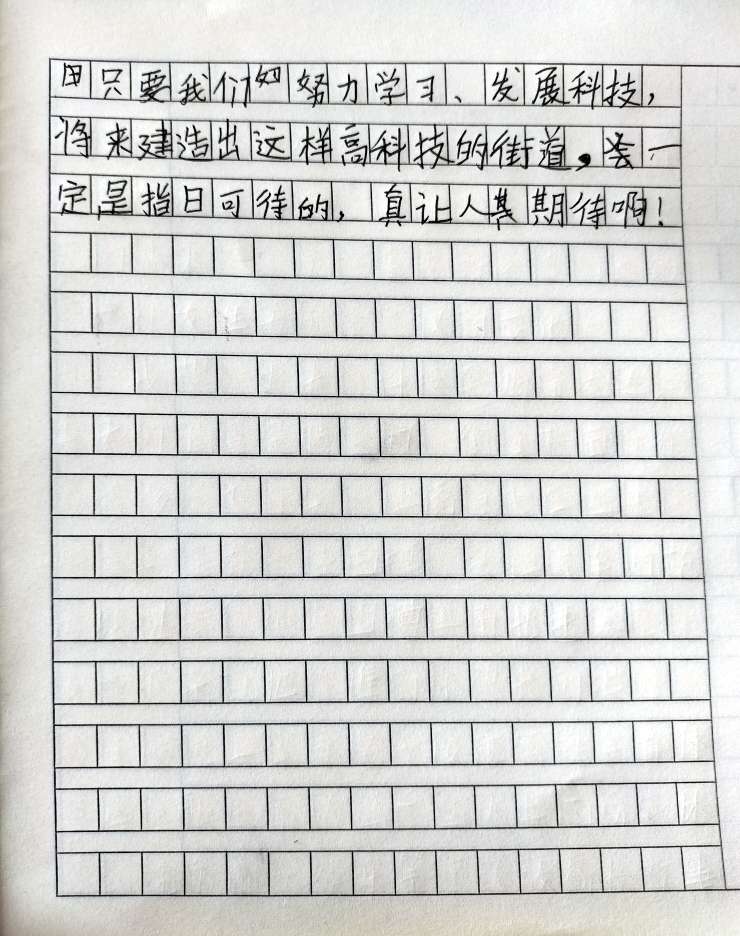 只要我们努力学习、发展科技，
将来建造出这样高科技的街道，会一
定是指日可待的，真让人期待啊！